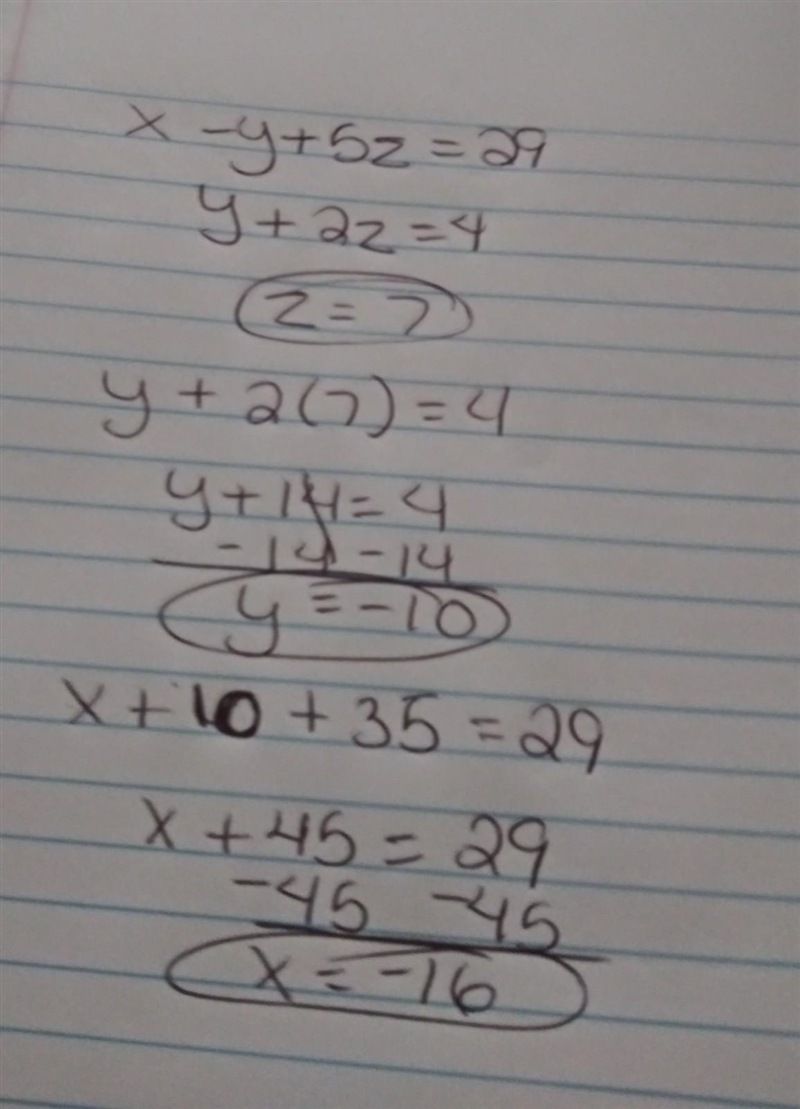 x - y + 5z = 29
y + 2z = 4
z = 7
y + 2(7) = 4
y + 14 = 4
-14 -14
y = -10
x + 10 + 35 = 29
x + 45 = 29
-45 -45
x = -16